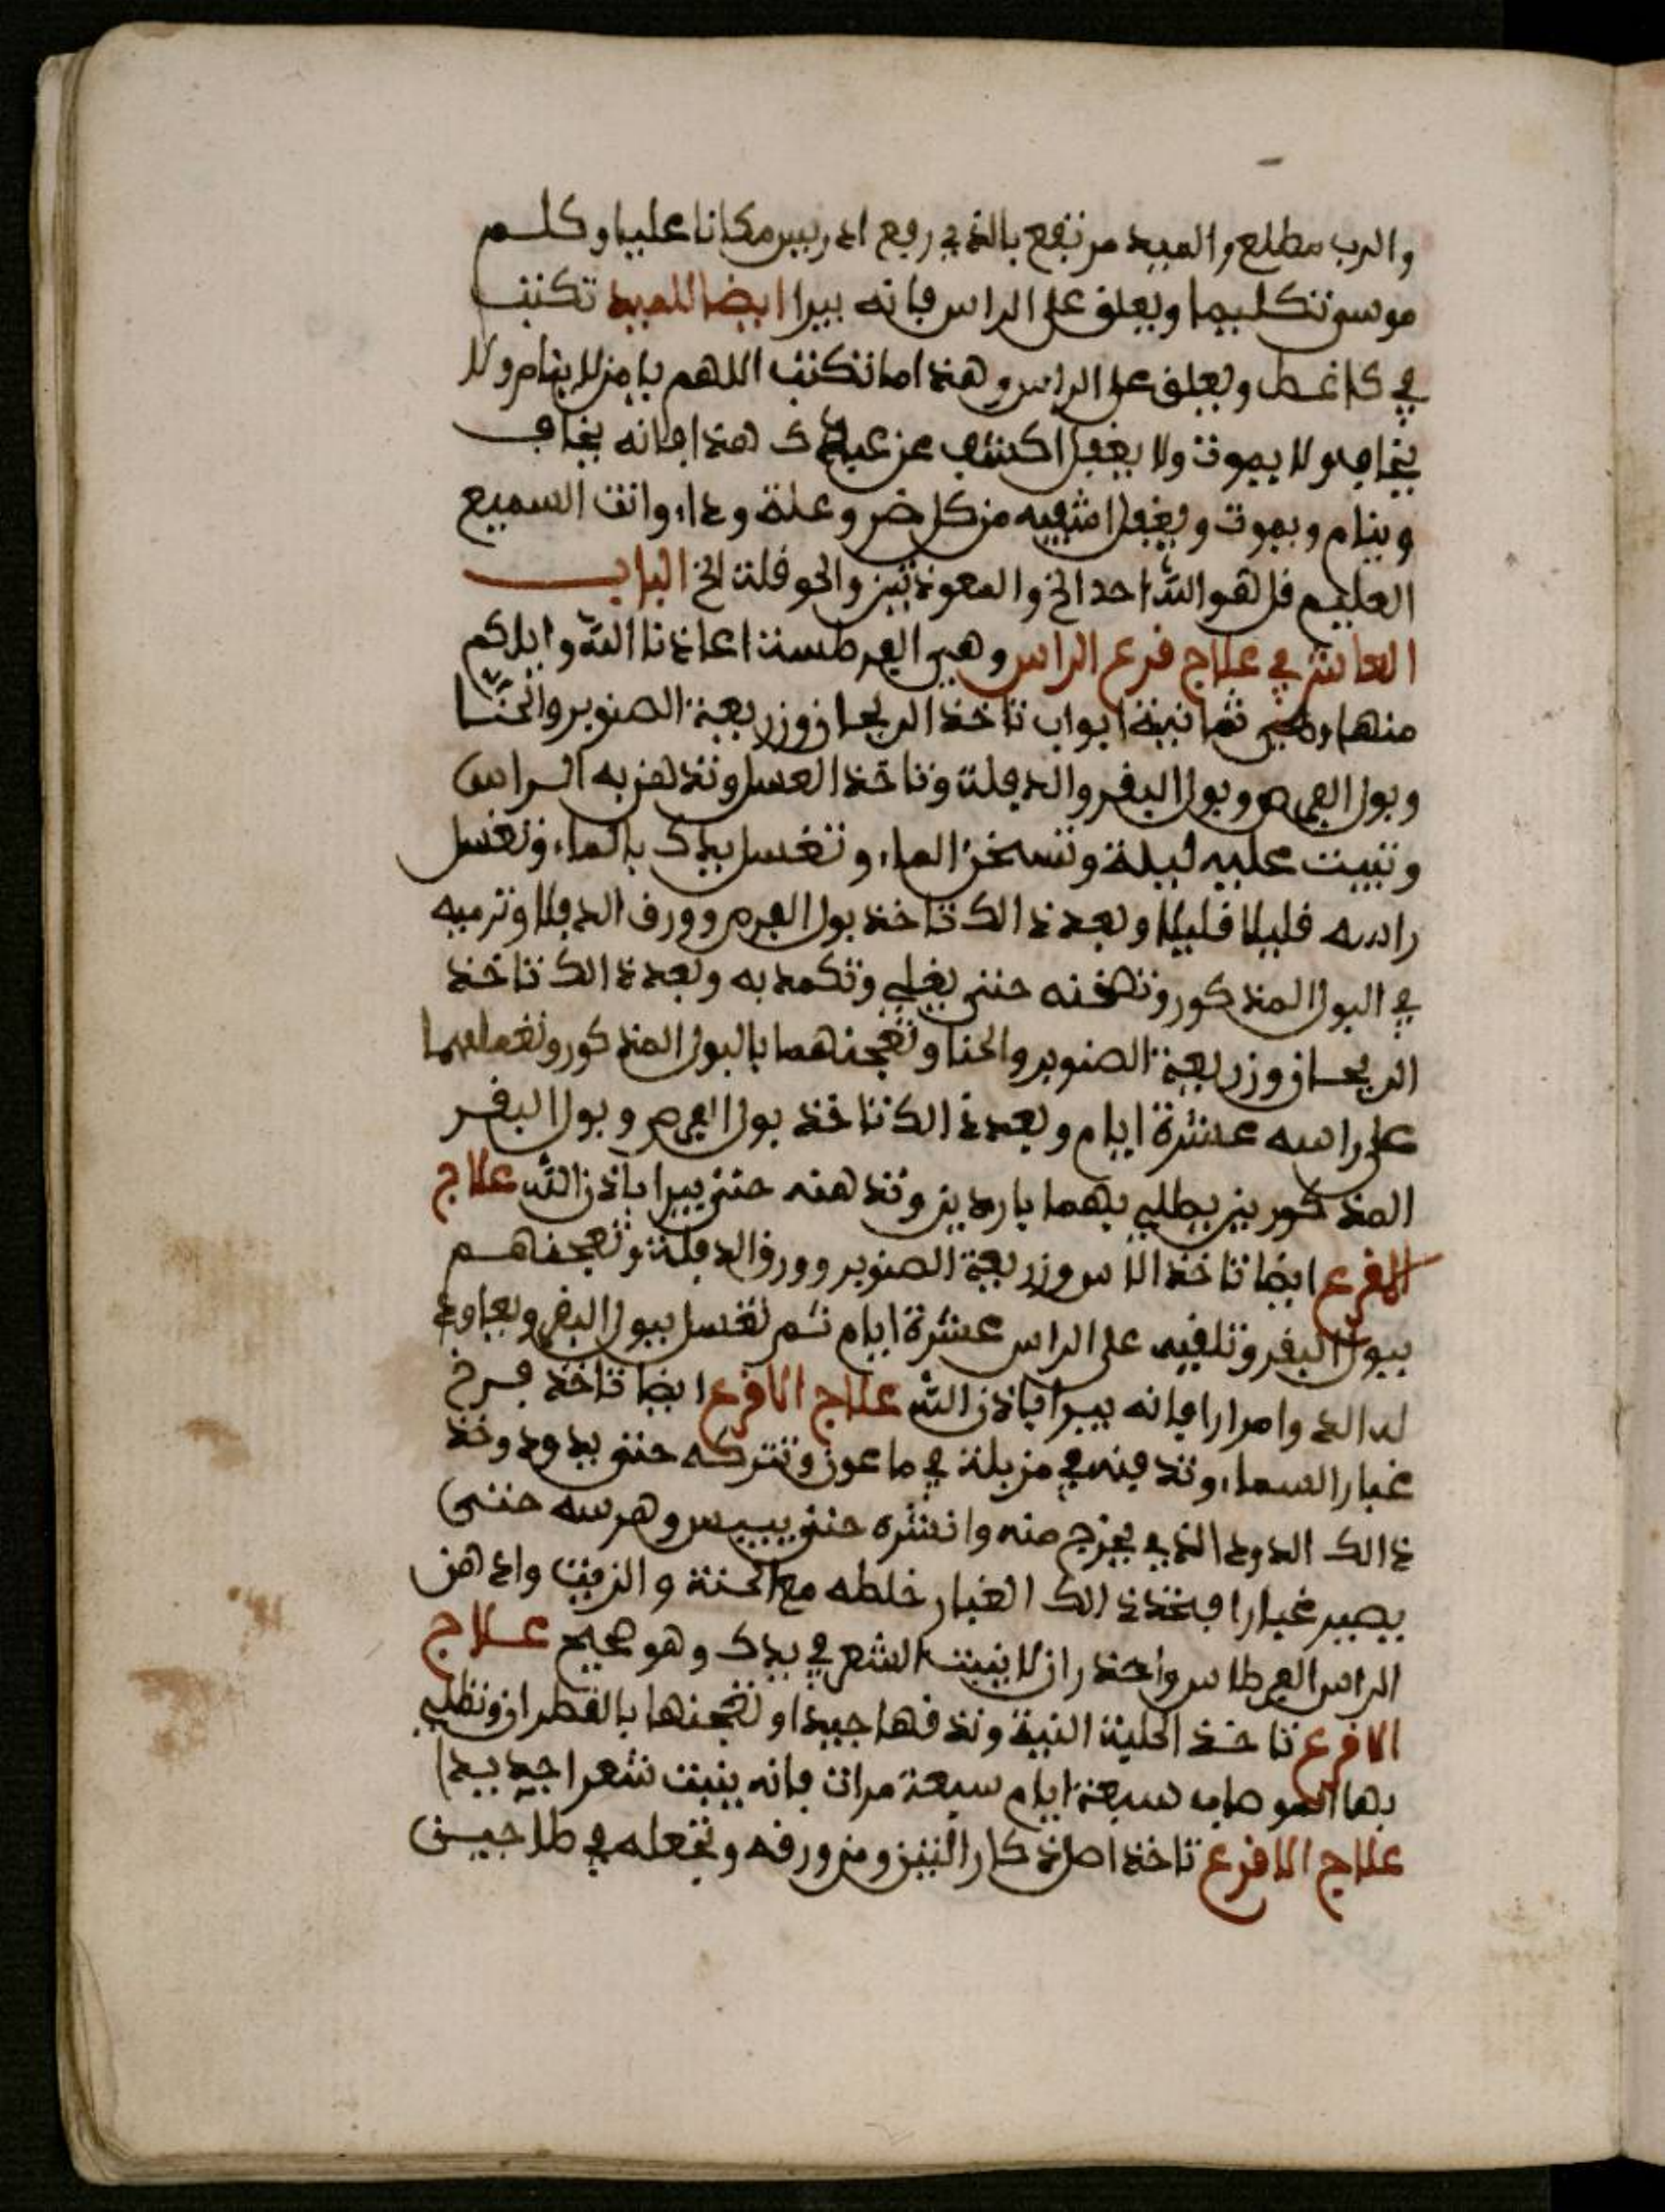 والرب مطلع والعبيد مرتفع بالذي رفع ادريس مكانا عليا وكلم
موسى تكليما ويعلق على الراس فانه يبرا ايضا للعبيد تكتب
في كاغط ويعلق على الراس وهذا ما تكتب اللهم يا من لا ينام ولا
يخاف ولا يموت ولا يغفل اكشف عن عبدك هذا فانه يخاف
وينام ويموت ويغفل اشفيه من كل ضر وعلة وداء وانت السميع
العليم قل هو الله احد الخ والمعوذتين والحوقلة الخ الباب
العاشر في علاج قرع الراس وهي الفرطسة اعاذنا الله واياكم
منها وهي ثمانية ابواب تاخذ الريحان وزريعة الصنوبر والحنا
وبول الفرص وبول البقر والدفلة وتاخذ العسل وتدهن به الراس
وتبيت عليه ليلة وتسخن الماء وتغسل يدك بالماء وتغسل
راسه قليلا قليلا وبعد ذالك تاخذ بول الفرص وورق الدفلا وترميه
في البول المذكور وتسخنه حتى يغلي وتكمد به وبعد ذالك تاخذ
الريحان وزريعة الصنوبر والحنا وتعجنهما بالبول المذكور وتعملهما
على راسه عشرة ايام وبعد ذالك تاخذ بول الفرص وبول البقر
المذكورين يطلي بهما باردين وتدهنه حتى يبرا باذن الله علاج
القرع ايضا تاخذ الاس وزريعة الصنوبر وورق الدفلة وتعجنهم
ببول البقر وتلقيه على الراس عشرة ايام ثم تغسل ببول البقر ويعاود
له الدوا مرارا فانه يبرا باذن الله علاج الاقرع ايضا تاخذ فرخ
غبار السماء وتدفنه في مزبلة في ماعون وتتركه حتى يدود وخذ
ذالك الدود الذي يخرج منه وانشره حتى ييبس وهرسه حتى
يصير غبارا فخذ ذالك الغبار خلطه مع الحنة والزيت وادهن
الراس الفرطاس واحذر ان لا ينبت الشعر في يدك وهو صحيح علاج
الاقرع تاخذ الحلبة النية وتدقها جيدا وتعجنها بالقطران وتطلي
بها الموضاب سبعة ايام سبعة مرات فانه ينبت شعرا جديدا
علاج الاقرع تاخذ اصل ذكار التين ومن ورقه وتجعله في طاجين